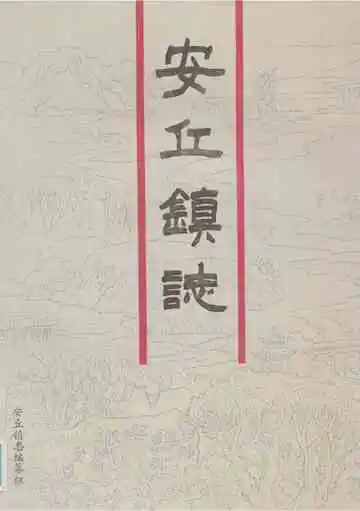 安丘鎮誌
安丘鎮志编纂组